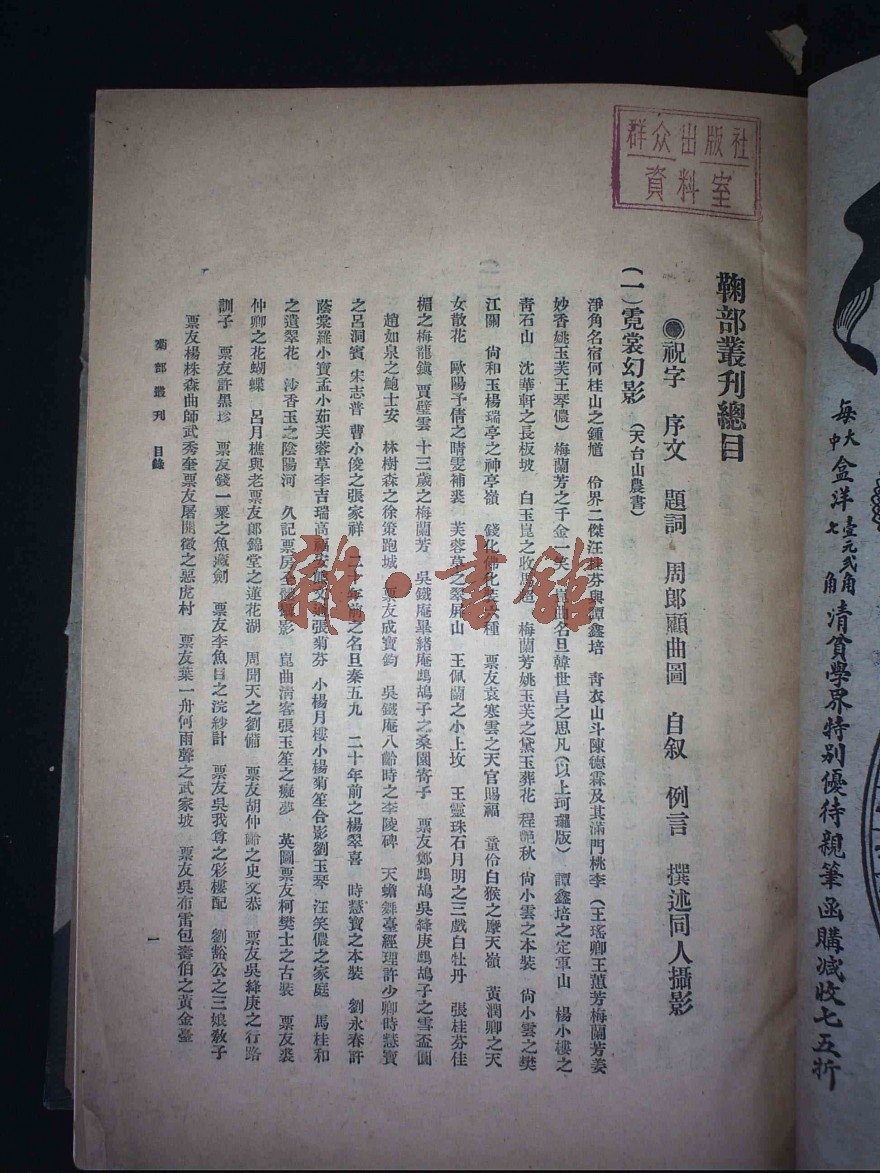 群众出版社
資料室
鞠部叢刊總目
●祝字　序文　題詞　周郎顧曲圖　自叙　例言　撰述同人攝影
（一）霓裳幻影（天台山農書）
淨角名宿何桂山之鍾馗　伶界二傑汪桂芬與譚鑫培　青衣山斗陳德霖及其滿門桃李（王瑤卿王蕙芳梅蘭芳姜
妙香姚玉芙王琴儂）梅蘭芳之千金一笑　崑曲名旦韓世昌之思凡（以上珂瓏版）譚鑫培之定軍山　楊小樓之
青石山　沈華軒之長板坡　白玉崑之收　梅蘭芳姚玉芙之黛玉葬花　程艷秋　尙小雲之本裝　尙小雲之樊
江關　尙和玉楊瑞亭之神亭嶺　錢化佛化裝六種　票友袁寒雲之天官賜福　童伶白猴之摩天嶺　黃潤卿之天
女散花　歐陽予倩之晴雯補裘　芙蓉草之翠屏山　王佩蘭之小上坟　王靈珠石月明之三戲白牡丹　張桂芬佳
楣之梅龍鎭　賈璧雲　十三歲之梅蘭芳　吳鐵庵畢緒庵鷓鴣子之桑園寄子　票友鄭鷓鴣吳絳庚鷓鴣子之雪盃圓
趙如泉之鮑士安　林樹森之徐策跑城　票友成寶鈞　吳鐵庵八齡時之李陵碑　天蟾舞臺經理許少卿時慧寶
之呂洞賓　宋志普　曹小俊之張家祥　二十年前之名旦秦五九　二十年前之楊翠喜　時慧寶之本裝　劉永春許
蔭棠羅小寶孟小茹芙蓉草李吉瑞高福安熊文通張菊芬　小楊月樓小楊菊笙合影劉玉琴　汪笑儂之家庭　馬桂和
之遺翠花　沙香玉之陰陽河　久記票房全體攝影　崑曲淸客張玉笙之癡夢　英國票友柯樊士之古裝　票友裘
仲卿之花蝴蝶　呂月樵與老票友郎錦堂之蓮花湖　周聞天之劉備　票友胡仲齡之史文恭　票友吳絳庚之行路
訓子　票友許黑珍　票友錢一粟之魚藏劍　票友李魚目之浣紗計　票友吳我尊之彩樓配　劉豁公之三娘敎子
票友楊株森曲師武秀奎票友屠開徵之惡虎村　票友葉一舟何雨聲之武家坡　票友吳布雷包壽伯之黃金臺
菊部叢刊　目錄
一
每大中盒洋壹元弍角七角淸貧學界特别優待親筆函購減收七五折
雜·書館